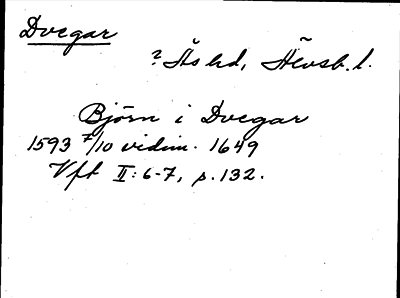 Dvegar
? Ås hd, Älvsb. l.
Björn i Dvegar
1593 7/10 vidim. 1649
Vft II:6-7, s. 132.